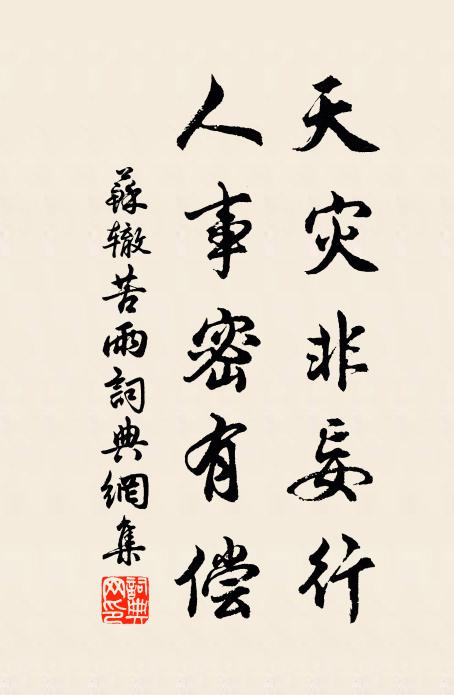 天灾非妄行
人事密有偿
蘇辙苦雨詞典網集
詞典网印